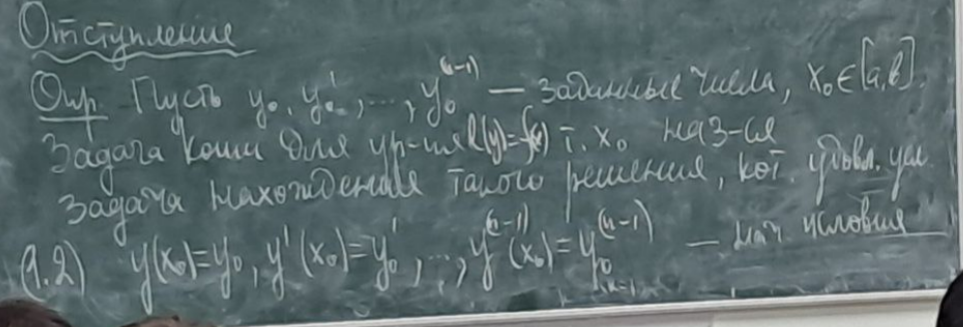 Отступление
Опр. Пусть y₀, y₀', ..., y₀⁽ⁿ⁻¹⁾ — заданные числа, x₀ ∈ [a,b].
Задача Коши для ур-ия l(y)=f(x) т. x₀ наз-ся
задача нахождения такого решения, кот. удовл. усл.
(1.2) y(x₀)=y₀, y'(x₀)=y₀', ..., y⁽ⁿ⁻¹⁾(x₀)=y₀⁽ⁿ⁻¹⁾ — нач условия